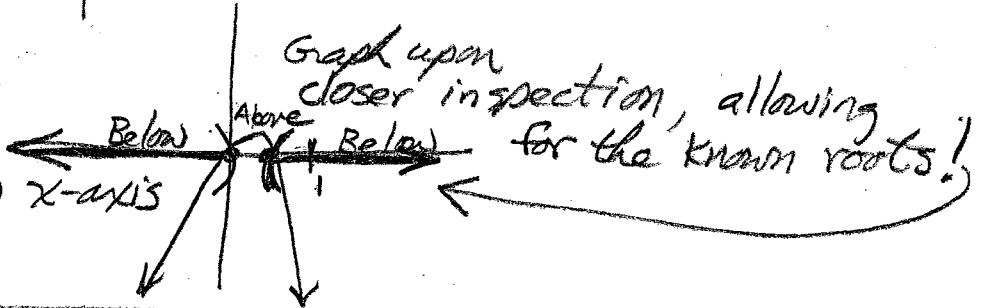 Graph upon
closer inspection, allowing
for the known roots!
Below Above Below
x-axis 1